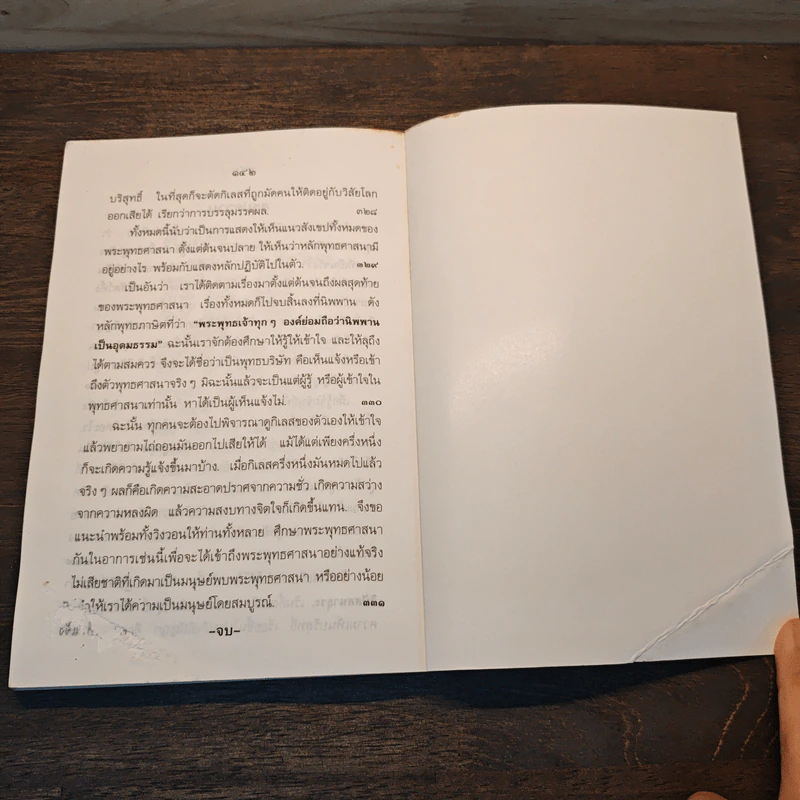 ๑๔๒
บริสุทธิ์ ในที่สุดก็จะตัดกิเลสที่ถูกมัดคนให้ติดอยู่กับวิสัยโลก
ออกเสียได้ เรียกว่าการบรรลุมรรคผล. ๓๒๘
ทั้งหมดนี้นับว่าเป็นการแสดงให้เห็นแนวสังเขปทั้งหมดของ
พระพุทธศาสนา ตั้งแต่ต้นจนปลาย ให้เห็นว่าหลักพุทธศาสนามี
อยู่อย่างไร พร้อมกับแสดงหลักปฏิบัติไปในตัว. ๓๒๙
เป็นอันว่า เราได้ติดตามเรื่องมาตั้งแต่ต้นจนถึงผลสุดท้าย
ของพระพุทธศาสนา เรื่องทั้งหมดก็ไปจบสิ้นลงที่นิพพาน ดัง
หลักพุทธภาษิตที่ว่า "พระพุทธเจ้าทุกๆ องค์ย่อมถือว่านิพพาน
เป็นอุดมธรรม" ฉะนั้นเราจักต้องศึกษาให้รู้ให้เข้าใจ และให้ลุถึง
ได้ตามสมควร จึงจะได้ชื่อว่าเป็นพุทธบริษัท คือเห็นแจ้งหรือเข้า
ถึงตัวพุทธศาสนาจริงๆ มิฉะนั้นแล้วจะเป็นแต่ผู้รู้ หรือผู้เข้าใจใน
พุทธศาสนาเท่านั้น หาได้เป็นผู้เห็นแจ้งไม่. ๓๓๐
ฉะนั้น ทุกคนจะต้องไปพิจารณาดูกิเลสของตัวเองให้เข้าใจ
แล้วพยายามไถ่ถอนมันออกไปเสียให้ได้ แม้ได้แต่เพียงครึ่งหนึ่ง
ก็จะเกิดความรู้แจ้งขึ้นมาบ้าง. เมื่อกิเลสครึ่งหนึ่งมันหมดไปแล้ว
จริงๆ ผลก็คือเกิดความสะอาดปราศจากความชั่ว เกิดความสว่าง
จากความหลงผิด แล้วความสงบทางจิตใจก็เกิดขึ้นแทน. จึงขอ
แนะนำพร้อมทั้งวิงวอนให้ท่านทั้งหลาย ศึกษาพระพุทธศาสนา
กันในอาการเช่นนี้เพื่อจะได้เข้าถึงพระพุทธศาสนาอย่างแท้จริง
ไม่เสียชาติที่เกิดมาเป็นมนุษย์พบพระพุทธศาสนา หรืออย่างน้อย
ให้เราได้ความเป็นมนุษย์โดยสมบูรณ์. ๓๓๑
–จบ–